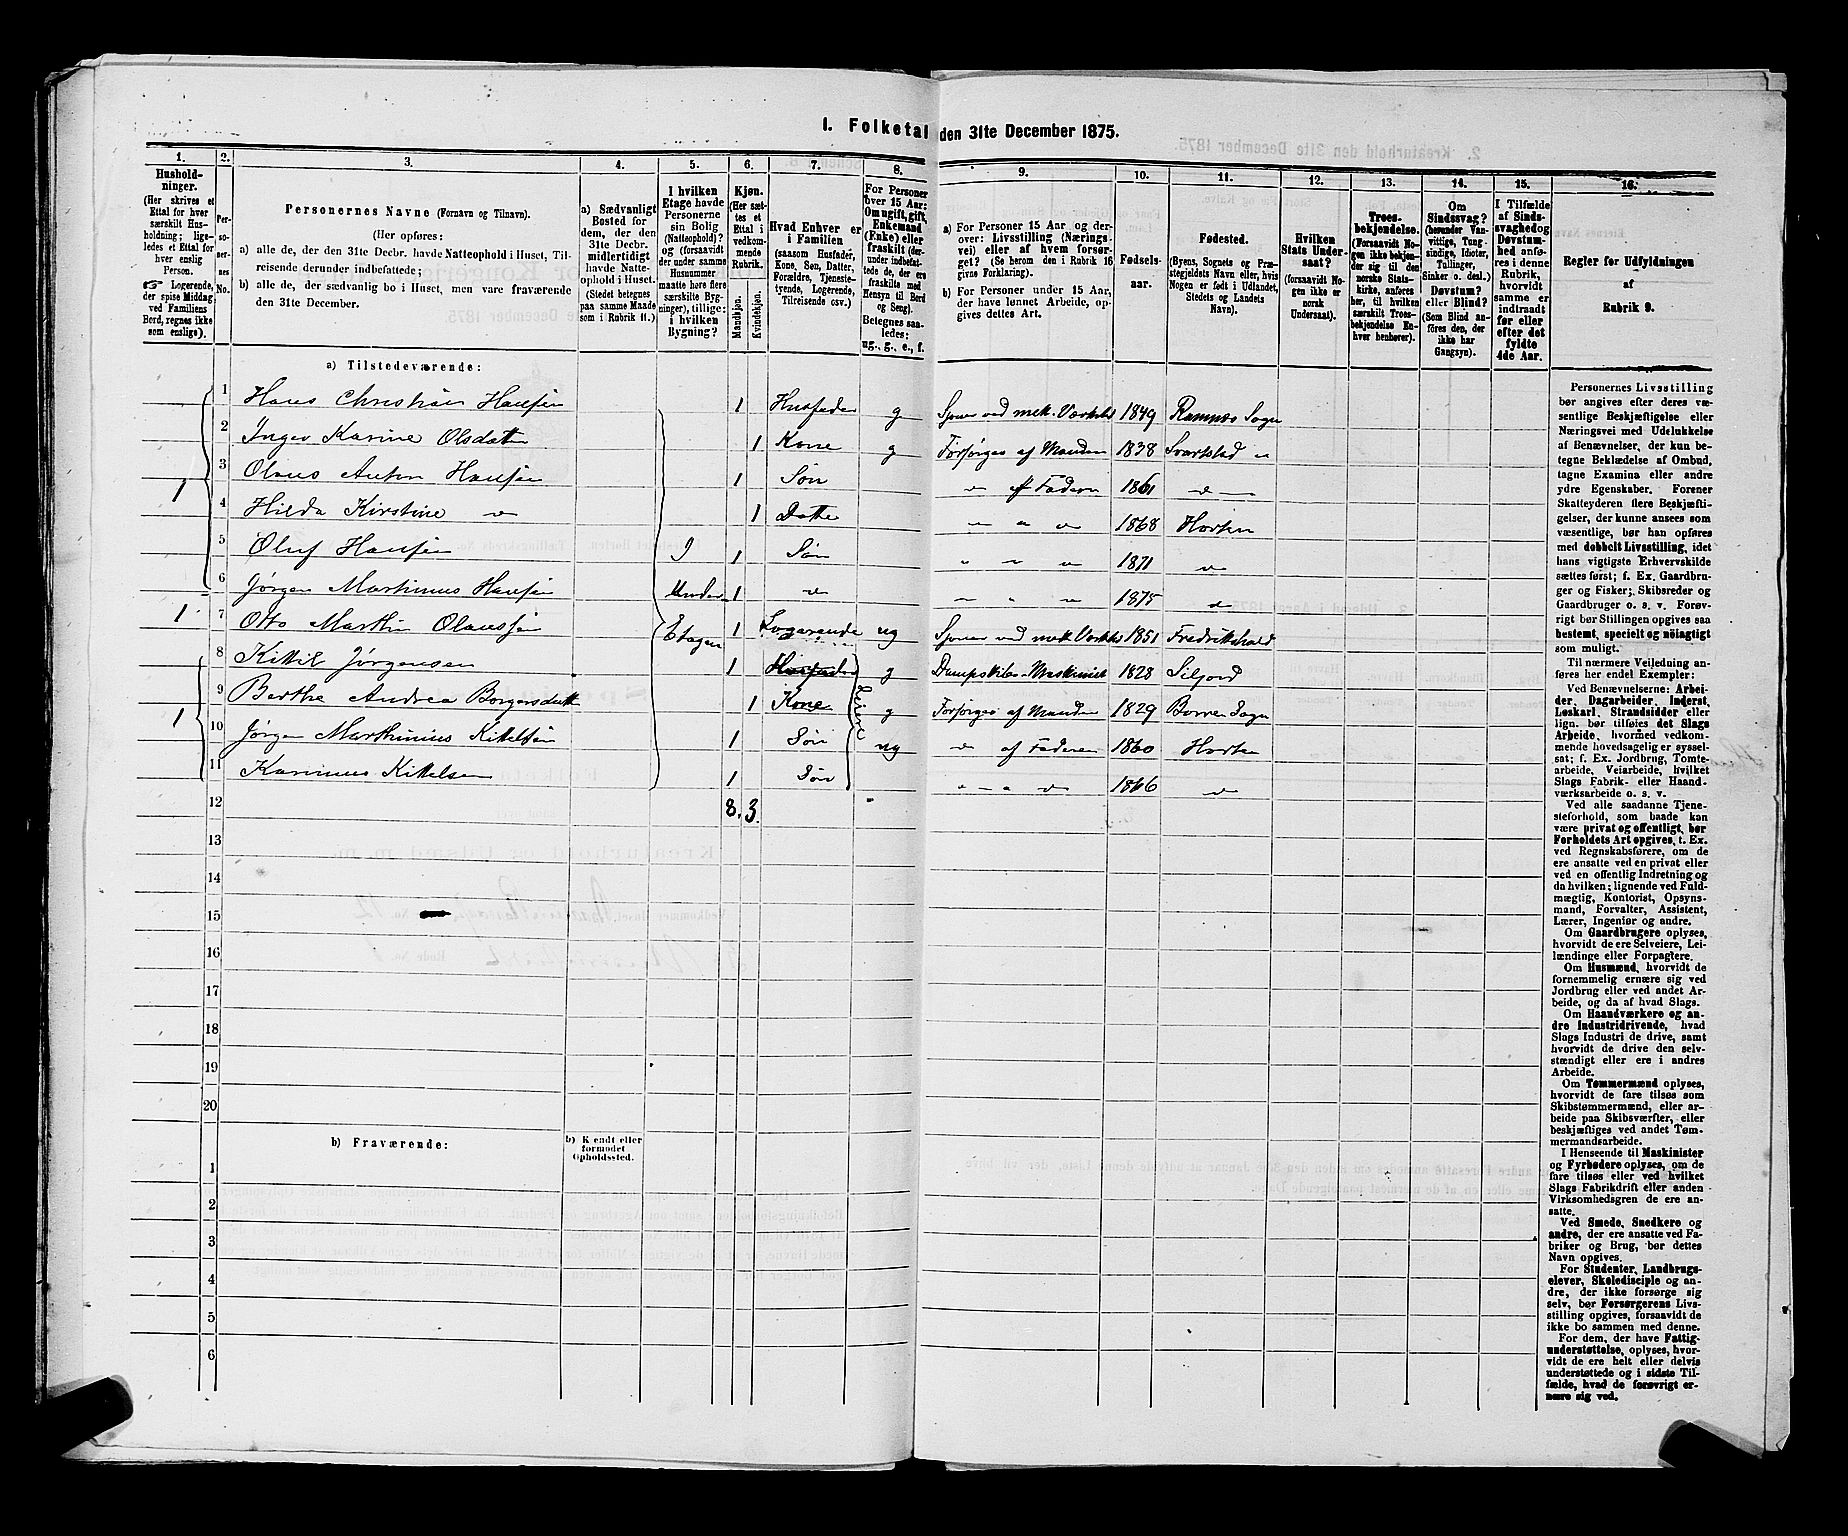 I. Folketal den 31te December 1875.
1. 2. 3. 4. 5. 6. 7. 8. 9. 10. 11. 12. 13. 14. 15. 16.
Hushold-
ninger.
(Her skrives et
Ettal for hver
særskilt Hus-
holdning; lige-
ledes et Ettal for
hver enslig
Person.
☞ Logerende,
der spise Middag
ved Familiens
Bord, regnes ikke
som enslige).
Per-
so-
ner-
nes
No.
Personernes Navne (Fornavn og Tilnavn).
(Her opføres:
a) alle de, der den 31te Decbr. havde Natteophold i Huset, Til-
reisende derunder indbefattede;
b) alle de, der sædvanlig bo i Huset, men vare fraværende
den 31te December.
a) Sædvanligt
Bosted for
dem, der den
31te Decbr.
midlertidigt
havde Natte-
ophold i Huset.
(Stedet betegnes
paa samme Maade
som i Rubrik 11.)
I hvilken
Etage havde
Personerne
sin Bolig
(Natteophold)?
(forsaavidt
der under samme
Husnummer
maatte høre flere
særskilte Byg-
ninger), tillige:
i hvilken
Bygning?
Kjøn.
(Her sæt-
tes et
Ettal i
vedkom-
mende
Rubrik.
Mandkjøn.
Kvindekjøn.
Hvad Enhver er
i Familien
(saasom Husfader,
Kone, Søn, Datter,
Forældre, Tjeneste-
tyende, Logerende,
Tilreisende osv.)
For Personer
over 15 Aar:
Om ugift, gift,
Enkemand
(Enke) eller
fraskilt (der-
under indbefat-
tede de, der ere
fraskilte med
Hensyn til Bord
og Seng).
Betegnes saa-
ledes:
ug., g., e., f.
a) For Personer 15 Aar og der-
over: Livsstilling (Nærings-
vei) eller af hvem forsør-
get? (Se herom den i Rubrik 16
givne Forklaring).
b) For Personer under 15 Aar,
der have lønnet Arbeide, op-
gives dettes Art.
Fødsels-
aar.
Fødested.
(Byens, Sognets og Præ-
stegjeldets Navn eller, hvis
Nogen er født i Udlandet,
Stedets og Landets
Navn).
Hvilken
Stats Under-
saat?
(forsaavidt No-
gen ikke er
norsk
Undersaat).
Troes-
bekjendelse.
(Forsaavidt No-
gen ikke bekjen-
der sig til den
norske Stats-
kirke, anføres
her, til hvilken
særskilt Troes-
bekjendelse En-
hver henhører).
Om
Sindssvag?
(herunder Van-
vittige, Tung-
sindige, Idioter,
Tullinger,
Sinker o. desl.)
Døvstum?
eller Blind?
(Som Blind an-
føres den, der
ikke har
Gangsyn).
I Tilfælde
af Sinds-
svaghed og
Døvstum-
hed anfø-
res i denne
Rubrik,
hvorvidt
samme er
indtraadt
før eller
efter det
fyldte
4de Aar.
Regler for Udfyldningen
af
Rubrik 9.
a) Tilstedeværende:
1 Hans Christian Hansen 1 Husfader g Sjouer ved mek. Værksted 1849 Ramnes Sogn
2 Inger Karine Olsdatt 1 Kone g Forsørges af Manden 1838 Svartstad "
3 Olaus Anton Hansen 1 Søn " af Faderen 1861 "
1 4 Hilda Kirstine " 1 Datte " " " 1868 Horten
5 Oluf Hansen I 1 Søn " " " 1871 "
6 Jørgen Marthinius Hansen Under- 1 " " " " 1875 "
1 7 Otto Marthin Olaussen Etagen 1 Logerende ug Sjouer ved mek Værksted 1851 Fredrikshald
8 Kittil Jørgensen 1 Husfader g Dampskibs-Maskinist 1828 Siljord
9 Berthe Andrea Borgersdatt 1 Kone g Forsørges af Manden 1829 Borre Sogn
Leiere
1 10 Jørgen Marthinius Kittelsen 1 Søn ug " af Faderen 1860 Horten
11 Karinius Kittelsen 1 Søn " " " 1866 "
12 8. 3.
13
14
15
16
17
18
19
20
b) Fraværende:
b) Kendt eller
formodet
Opholdssted.
1
2
3
4
5
6
Personernes Livsstilling
bør angives efter deres væ-
sentlige Beskjæftigelse eller
Næringsvei med Udelukkelse
af Benævnelser, der kun be-
tegne Beklædelse af Ombud,
tagne Examina eller andre
ydre Egenskaber. Forener
Skatteyderen flere Beskjæfti-
gelser, der kunne ansees som
væsentlige, bør han opføres
med dobbelt Livsstilling, idet
hans vigtigste Erhvervskilde
sættes først; f. Ex. Gaardbru-
ger og Fisker; Skibsreder og
Gaardbruger o. s. v. Forøv-
rigt bør Stillingen opgives saa
bestemt, specielt og nøiagtigt
som muligt.
Til nærmere Veiledning an-
føres her endel Exempler:
Ved Benævnelserne: Arbei-
der, Dagarbeider, Inderst,
Løskarl, Strandsidder eller
lign. bør tilføies det Slags
Arbeide, hvormed vedkom-
mende hovedsagelig er syssel-
sat; f. Ex. Jordbrug, Tomte-
arbeide, Veiarbeide, hvilket
Slags Fabrik- eller Haand-
værksarbeide o. s. v.
Ved alle saadanne Tjene-
steforhold, som baade kan
være privat og offentligt, bør
Forholdets Art opgives, t. Ex.
ved Regnskabsførere, om de
ere ansatte ved en privat eller
ved en offentlig Indretning og
da hvilken; lignende ved Fuld-
mægtig, Kontorist, Opsyns-
mand, Forvalter, Assistent,
Lærer, Ingeniør og andre.
Om Gaardbrugere oplyses,
hvorvidt de ere Selveiere, Lei-
lændinge eller Forpagtere.
Om Husmænd, hvorvidt de
fornemmelig ernære sig ved
Jordbrug eller ved andet Ar-
beide, og da af hvad Slags.
Om Haandværkere og an-
dre Industridrivende, hvad
Slags Industri de drive, samt
hvorvidt de drive den selv-
stændigt eller ere i andres
Arbeide.
Om Tømmermænd oplyses,
hvorvidt de fare tilsøs som
Skibstømmermænd, eller ar-
beide paa Skibsværfter, eller
beskjæftiges ved andet Tøm-
mermandsarbeide.
I Henseende til Maskinister
og Fyrbødere oplyses, om de
fare tilsøs eller ved hvilket
Slags Fabrikdrift eller anden
Virksomhedsgren de ere an-
satte.
Ved Smede, Snedkere og
andre, der ere ansatte ved Fa-
briker og Brug, bør dettes
Navn opgives.
For Studenter, Landbrugs-
elever, Skoledisciple og an-
dre, der ikke forsørge sig
selv, bør Forsørgerens Livs-
stilling opgives, forsaavidt de
ikke bo sammen med denne.
For dem, der have Fattig-
understøttelse, oplyses, hvor-
vidt de ere helt eller delvis
understøttede og i sidste Til-
fælde, hvad de forøvrigt er-
nære sig ved.